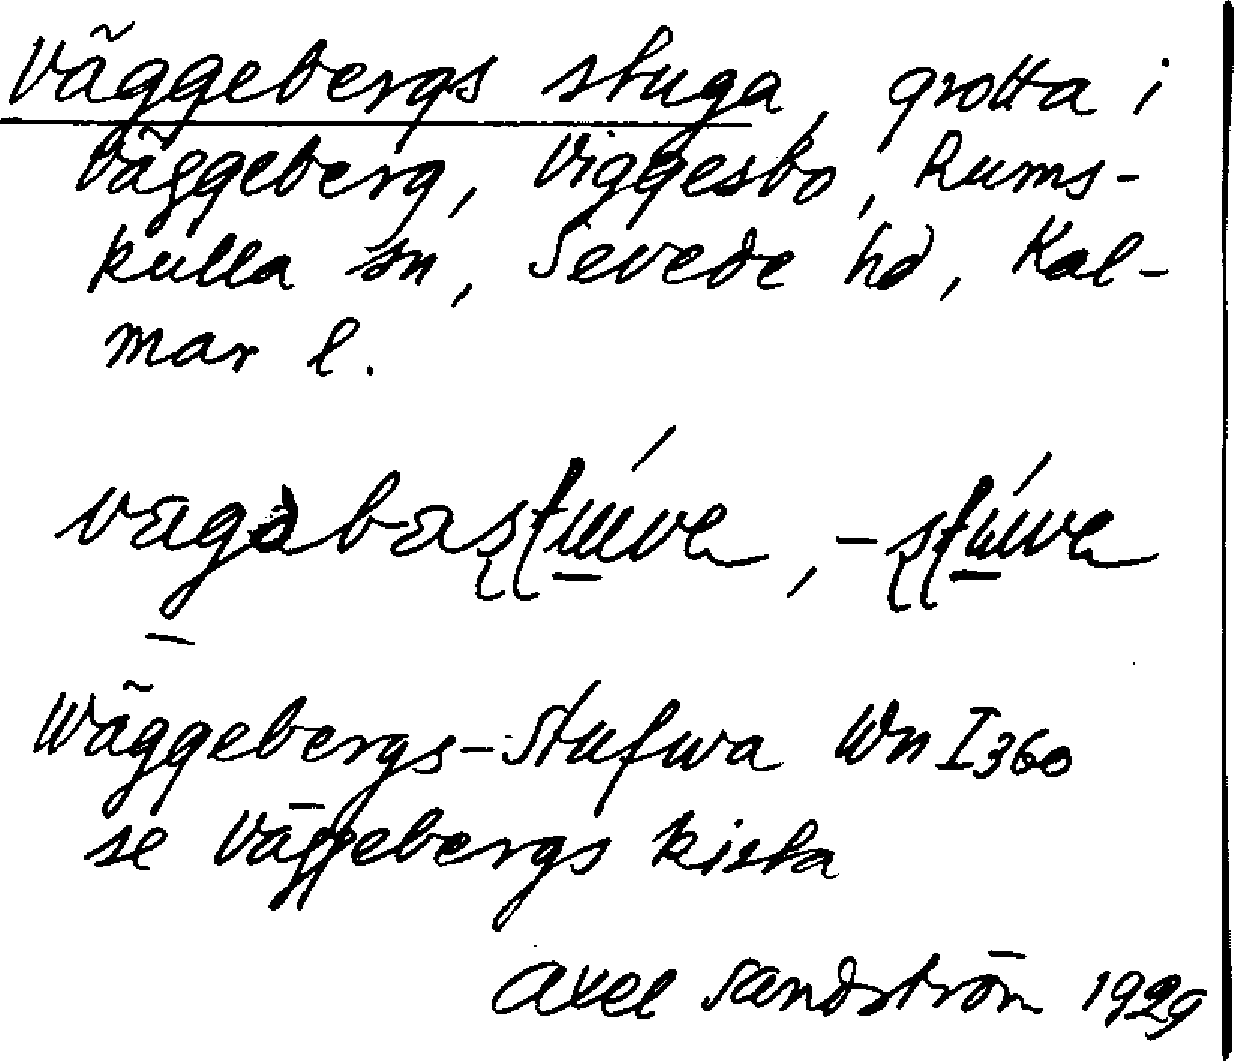 Väggebergs stuga, grotta i
Väggeberg, Viggesbo, Rums-
kulla sn, Sevede hd, Kal-
mar l.
Wäggebergs-Stufwa Wn I 360
se Väggebergs kista
Axel Sandström 1929